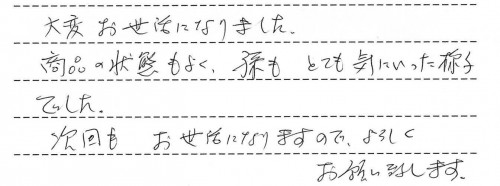 大変お世話になりました.
商品の状態もよく、孫も とても気にいった様子
でした.
次回も お世話になりますので、よろしく
お願い致します.